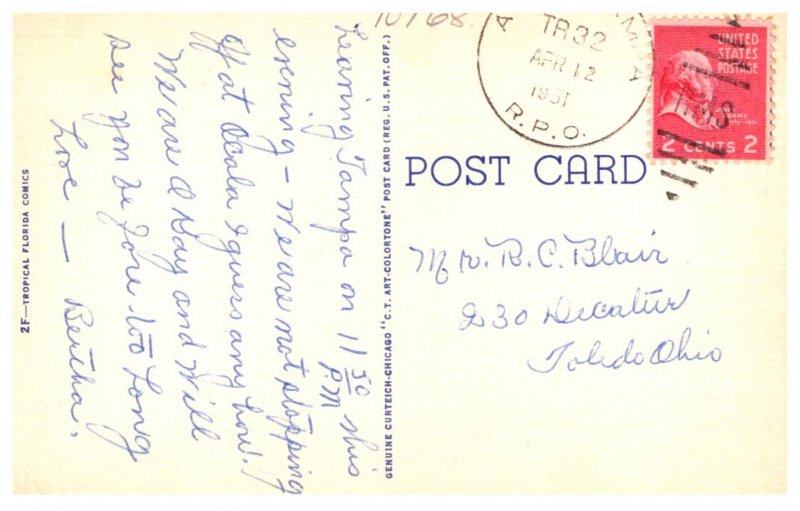 10768.
TR32
APR 12
1951
R.P.O.
UNITED
STATES
POSTAGE
2 CENTS 2
POST CARD
Mr. R. C. Blair
230 Decatur
Toledo Ohio
Leaving Tampa on 11 30 this
P.M
evening - We are not stopping
off at Ocala I guess any how.
We are O Kay and will
see you be fore too Long
Love - Bertha.
GENUINE CURTEICH-CHICAGO "C.T. ART-COLORTONE" POST CARD (REG. U.S. PAT. OFF.)
2F—TROPICAL FLORIDA COMICS